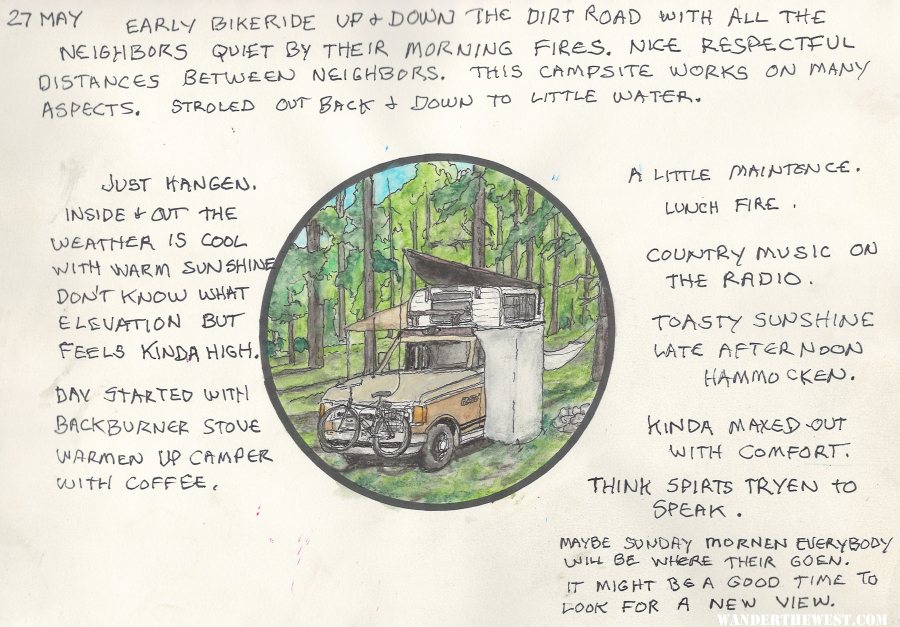 27 MAY
EARLY BIKERIDE UP & DOWN THE DIRT ROAD WITH ALL THE
NEIGHBORS QUIET BY THEIR MORNING FIRES. NICE RESPECTFUL
DISTANCES BETWEEN NEIGHBORS. THIS CAMPSITE WORKS ON MANY
ASPECTS. STROLED OUT BACK & DOWN TO LITTLE WATER.
JUST HANGEN.
INSIDE & OUT THE
WEATHER IS COOL
WITH WARM SUNSHINE
DON'T KNOW WHAT
ELEVATION BUT
FEELS KINDA HIGH.
DAY STARTED WITH
BACKBURNER STOVE
WARMEN UP CAMPER
WITH COFFEE.
A LITTLE MAINTENCE.
LUNCH FIRE.
COUNTRY MUSIC ON
THE RADIO.
TOASTY SUNSHINE
LATE AFTERNOON
HAMMOCKEN.
KINDA MAXED OUT
WITH COMFORT.
THINK SPIRTS TRYEN TO
SPEAK.
MAYBE SUNDAY MORNEN EVERYBODY
WILL BE WHERE THEIR GOEN.
IT MIGHT BE A GOOD TIME TO
LOOK FOR A NEW VIEW.
WANDERTHEWEST.COM